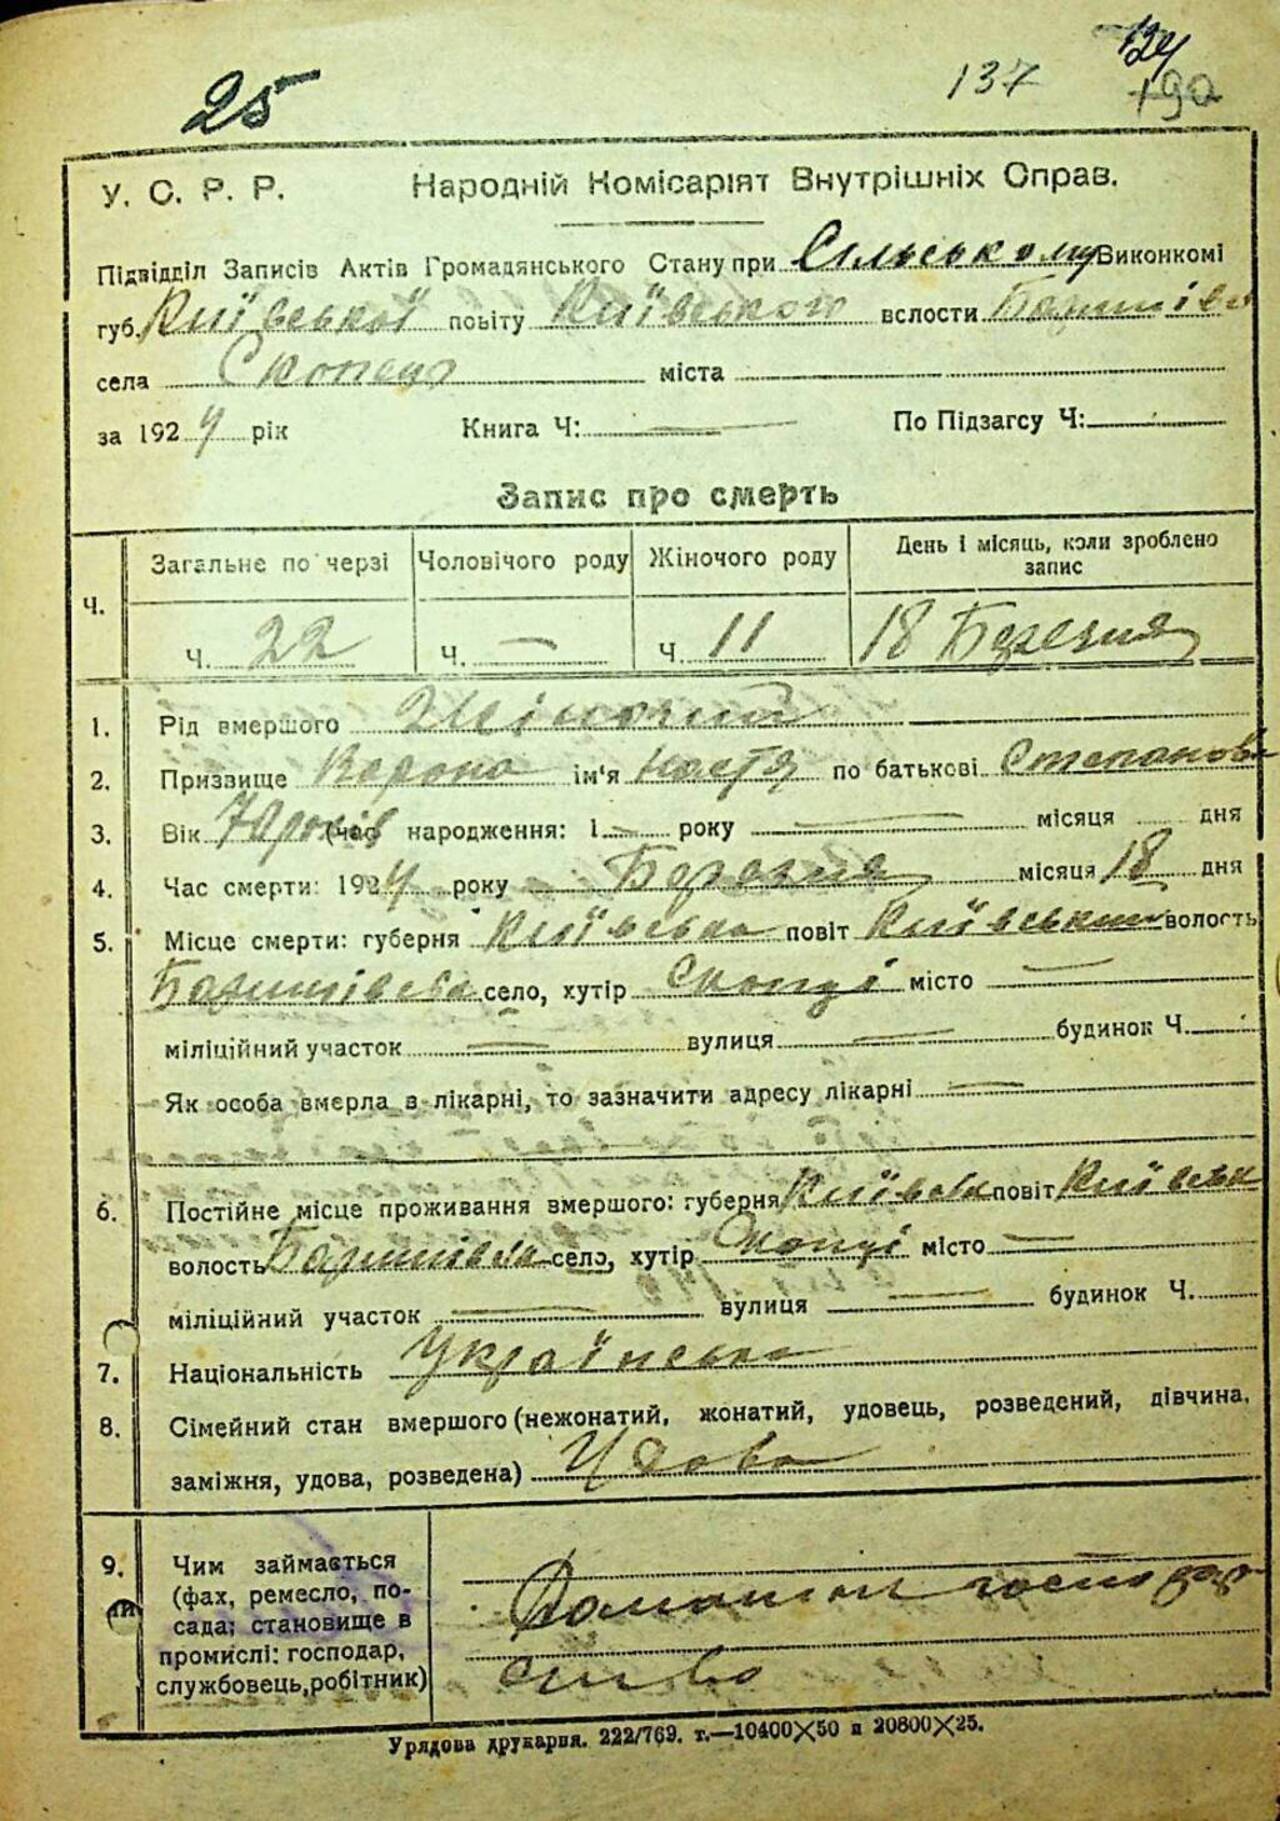 25
137
124
190
У. С. Р. Р. Народній Комісаріят Внутрішніх Справ.
Підвідділ Записів Актів Громадянського Стану при Сільському Виконкомі
губ. Київської повіту Київського вслости Баришівс
села Скопець міста
за 1924 рік Книга Ч: — По Підзагсу Ч:
Запис про смерть
Ч. Загальне по черзі Чоловічого роду Жіночого роду День і місяць, коли зроблено запис
Ч. 22 Ч. — Ч. 11 18 Березня
1. Рід вмершого Жіночий
2. Призвище Корона ім'я Настя по батькові Степанов
3. Вік 70 років (час народження: 1 — року — місяця дня
4. Час смерти: 1924 року Березня місяця 18 дня
5. Місце смерти: губерня Київська повіт Київський волость
Баришівська село, хутір Скопці місто —
міліційний участок — вулиця — будинок Ч.
Як особа вмерла в лікарні, то зазначити адресу лікарні —
6. Постійне місце проживання вмершого: губерня Київськ повіт Київськ
волость Баришівськ село, хутір Скопці місто —
міліційний участок — вулиця — будинок Ч.
7. Національність Українська
8. Сімейний стан вмершого (нежонатий, жонатий, удовець, розведений, дівчина,
заміжня, удова, розведена) Удова
9. Чим займається
(фах, ремесло, по-
сада; становище в
промислі: господар,
службовець, робітник)
Домашнє господар
ство
Урядова друкарня. 222/769. т.—10400×50 и 20800×25.